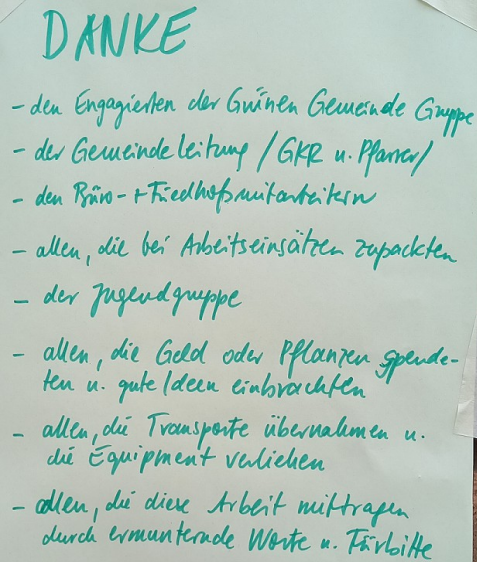 DANKE
- den Engagierten der Grünen Gemeinde Gruppe
- der Gemeindeleitung / GKR u. Pfarrer /
- den Büro- + Friedhofsmitarbeitern
- allen, die bei Arbeitseinsätzen zupackten
- der Jugendgruppe
- allen, die Geld oder Pflanzen spende-
ten u. gute Ideen einbrachten
- allen, die Transporte übernahmen u.
die Equipment verliehen
- allen, die diese Arbeit mittragen
durch ermunternde Worte u. Fürbitte